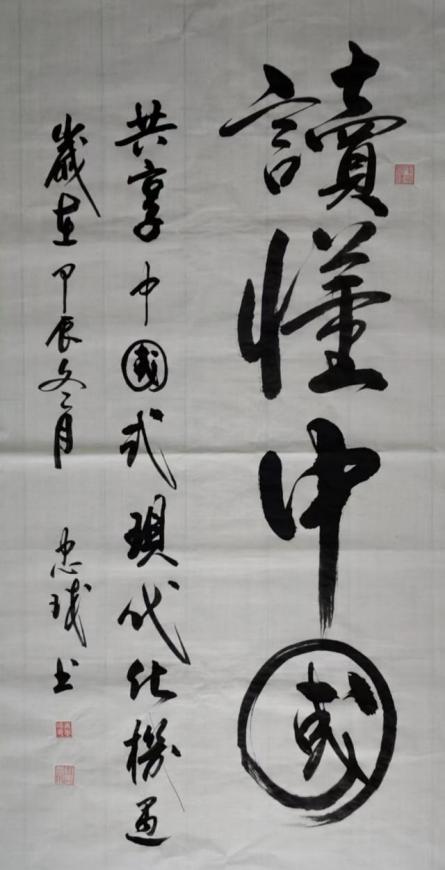 讀懂中國
共享中國式現代化機遇
歲在甲辰文二月
忠誠书